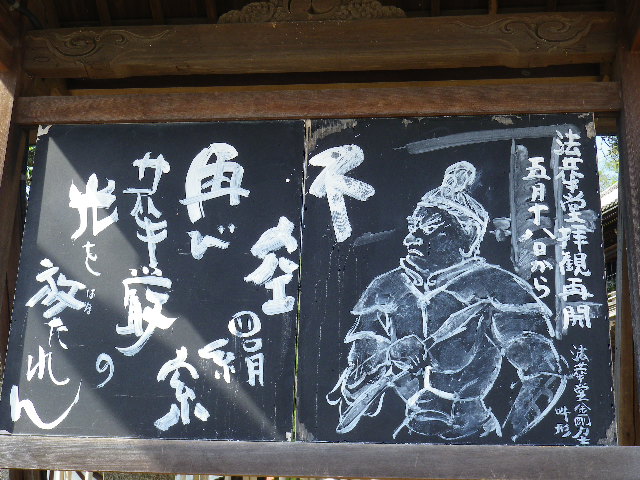 法華堂拝観再開
五月十八日から
法華堂金剛力士
吽形
不空羂索
再び
厳の
光を
放たれん
はな